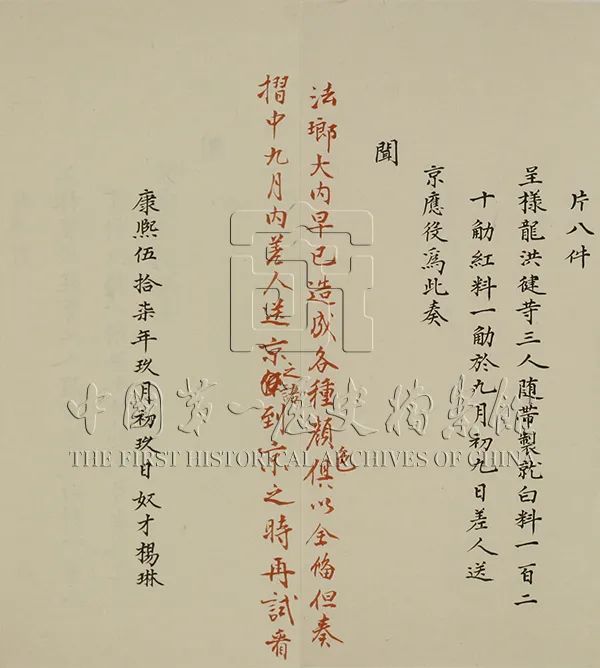 片八件
呈樣龍洪健䓁三人随帶製就白料一百二
十觔紅料一觔於九月初九日差人送
京應役爲此奏
聞
法瑯大內早已造成各種顏色俱以全俻但奏
摺中九月內差人送京之語到京之時再試看
康熙伍拾柒年玖月初玖日奴才楊琳
中國第一歷史檔案館
THE FIRST HISTORICAL ARCHIVES OF CHINA